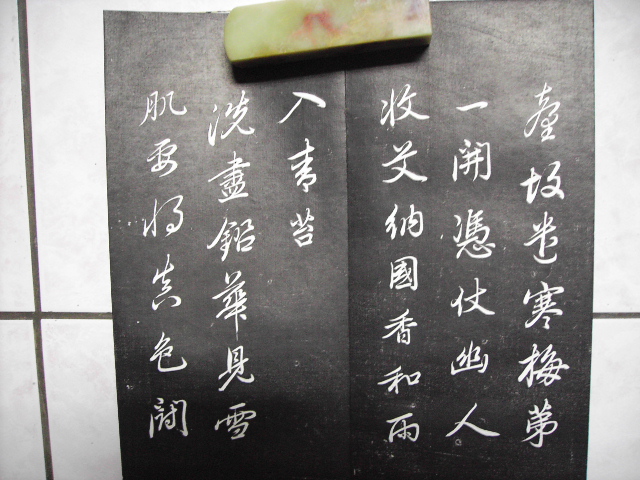 臺故遣寒梅第
一開憑仗幽人
收艾納國香和雨
入青苔
洗盡鉛華見雪
肌要將真色鬪